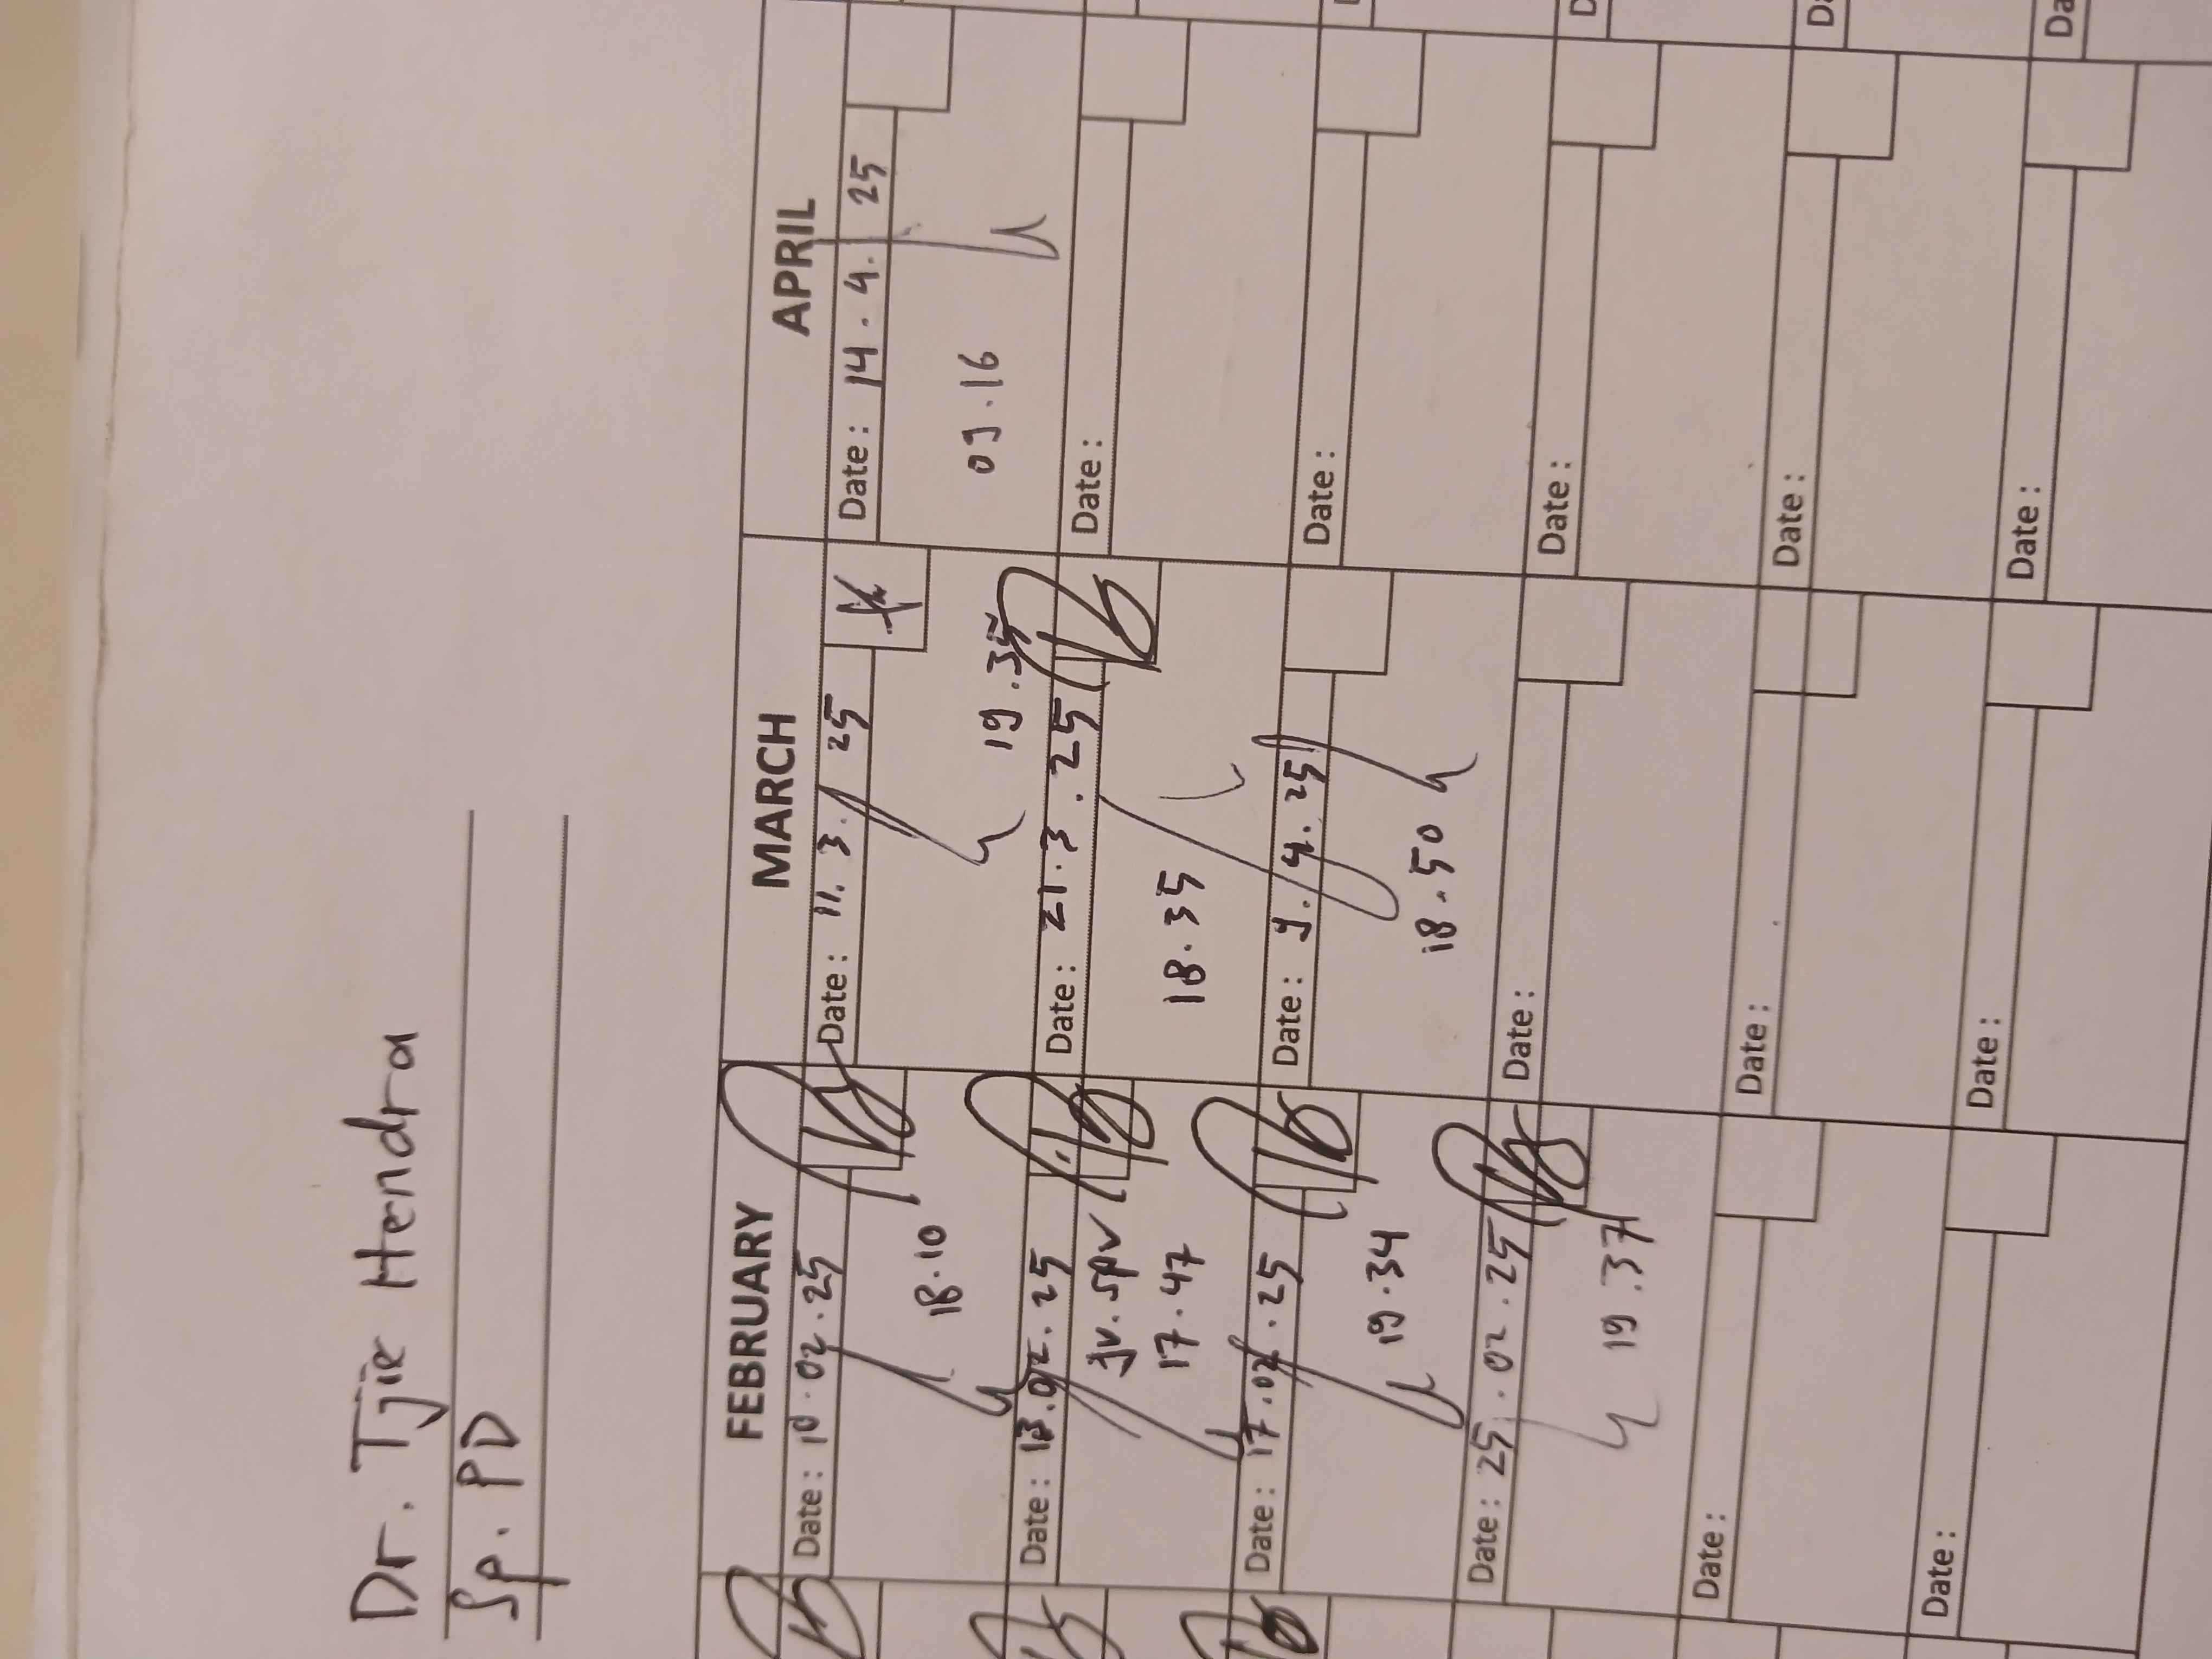 Dr. Tjie Hendra
Sp. PD
FEBRUARY
Date: 10.02.25
18.10
Date: 13.02.25
Jv. SPV
17.47
Date: 17.02.25
19.34
Date: 25.02.25
19.37
Date:
Date:
MARCH
Date: 11.3.25
19.35
Date: 21.3.25
18.35
Date: 9.4.25
18.50
Date:
Date:
Date:
APRIL
Date: 14.4.25
09.16
Date:
Date:
Date:
Date:
Date: